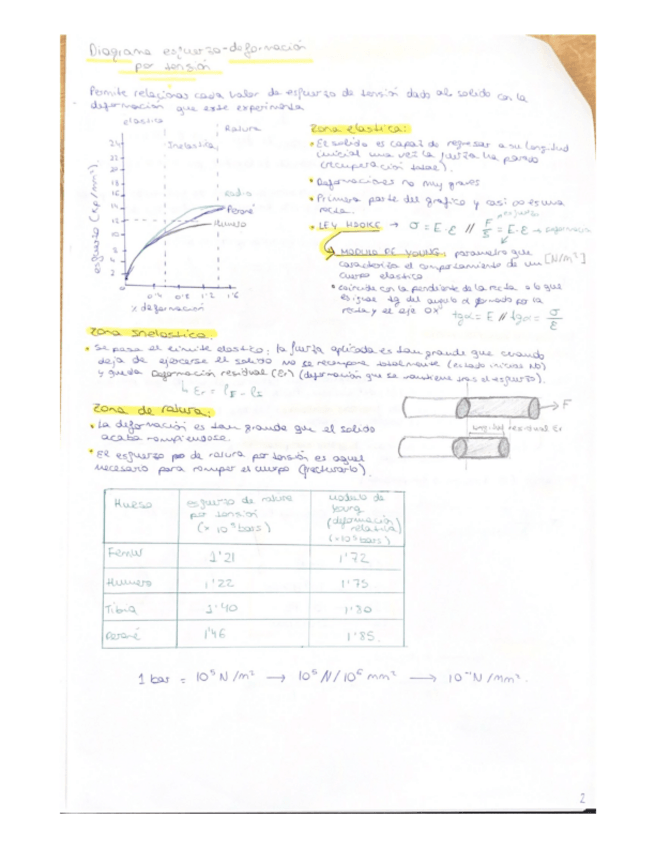 Diagrama esfuerzo-deformación
por tensión
Permite relacionar cada valor de esfuerzo de tensión dado al solido con la
deformación que este experimenta
elastica
Inelastica
Rotura
24
22
20
18
16
14
12
8
6
4
2
esfuerzo (Kp/mm²)
Radio
Peroné
Humero
0'4 0'8 1'2 1'6
% deformación
Zona elastica:
• El solido es capaz de regresar a su longitud
inicial una vez la fuerza ha parado
(recuperación total).
• Deformaciones no muy graves
• Primera parte del grafico y casi es una
recta.
• LEY HOOKE → σ = E·ε // F/S = E·ε → deformación
esfuerzo
MODULO DE YOUNG: parametro que [N/m²]
caracteriza el comportamiento de un
cuerpo elastico
• coincide con la pendiente de la recta o lo que
es igual tg del angulo α formado por la
recta y el eje OX tgα = E // tgα = σ/ε
Zona Inelastica:
• Se pasa el limite elastico; la fuerza aplicada es tan grande que cuando
deja de ejercerse el solido no se recupera totalmente (estado inicial NO)
y queda Deformación residual (Er) (deformación que se mantiene tras el esfuerzo).
F
longitud residual Er
Zona de rotura:
• La deformación es tan grande que el solido
acaba rompiendose.
• El esfuerzo de rotura por tensión es aquel
necesario para romper el cuerpo (fracturarlo).
Hueso esfuerzo de rotura por tensión (x 10⁵ bars) modulo de Young (deformación relativa) (x10⁵ bars)
Fémur 1'21 1'72
Humero 1'22 1'75
Tibia 1'40 1'80
Peroné 1'46 1'85
1 bar = 10⁵ N/m² → 10⁵ N/10⁶ mm² → 10⁻¹ N/mm².
2